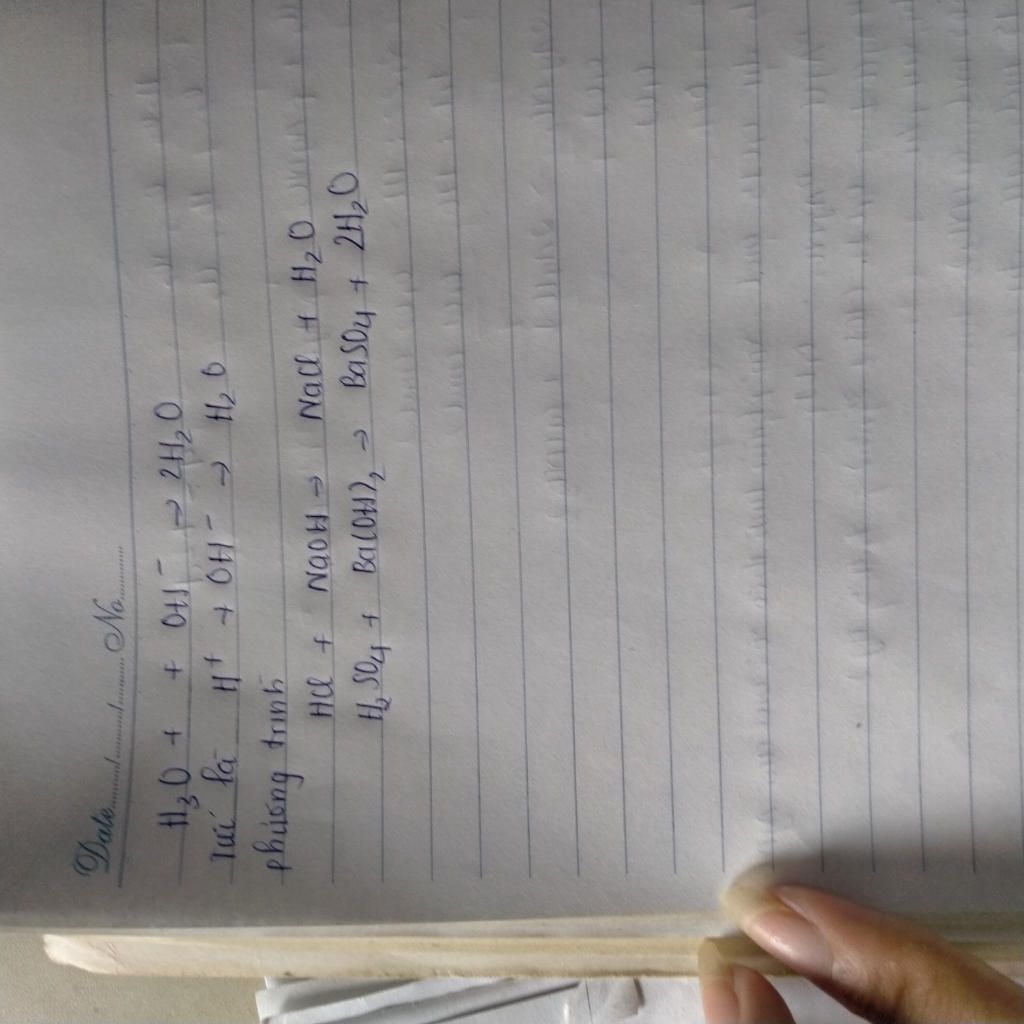 Date....../....../...... No.........
H₃O + + OH⁻ → 2H₂O
Tức là H⁺ + OH⁻ → H₂O
phương trình
HCl + NaOH → NaCl + H₂O
H₂SO₄ + Ba(OH)₂ → BaSO₄ + 2H₂O